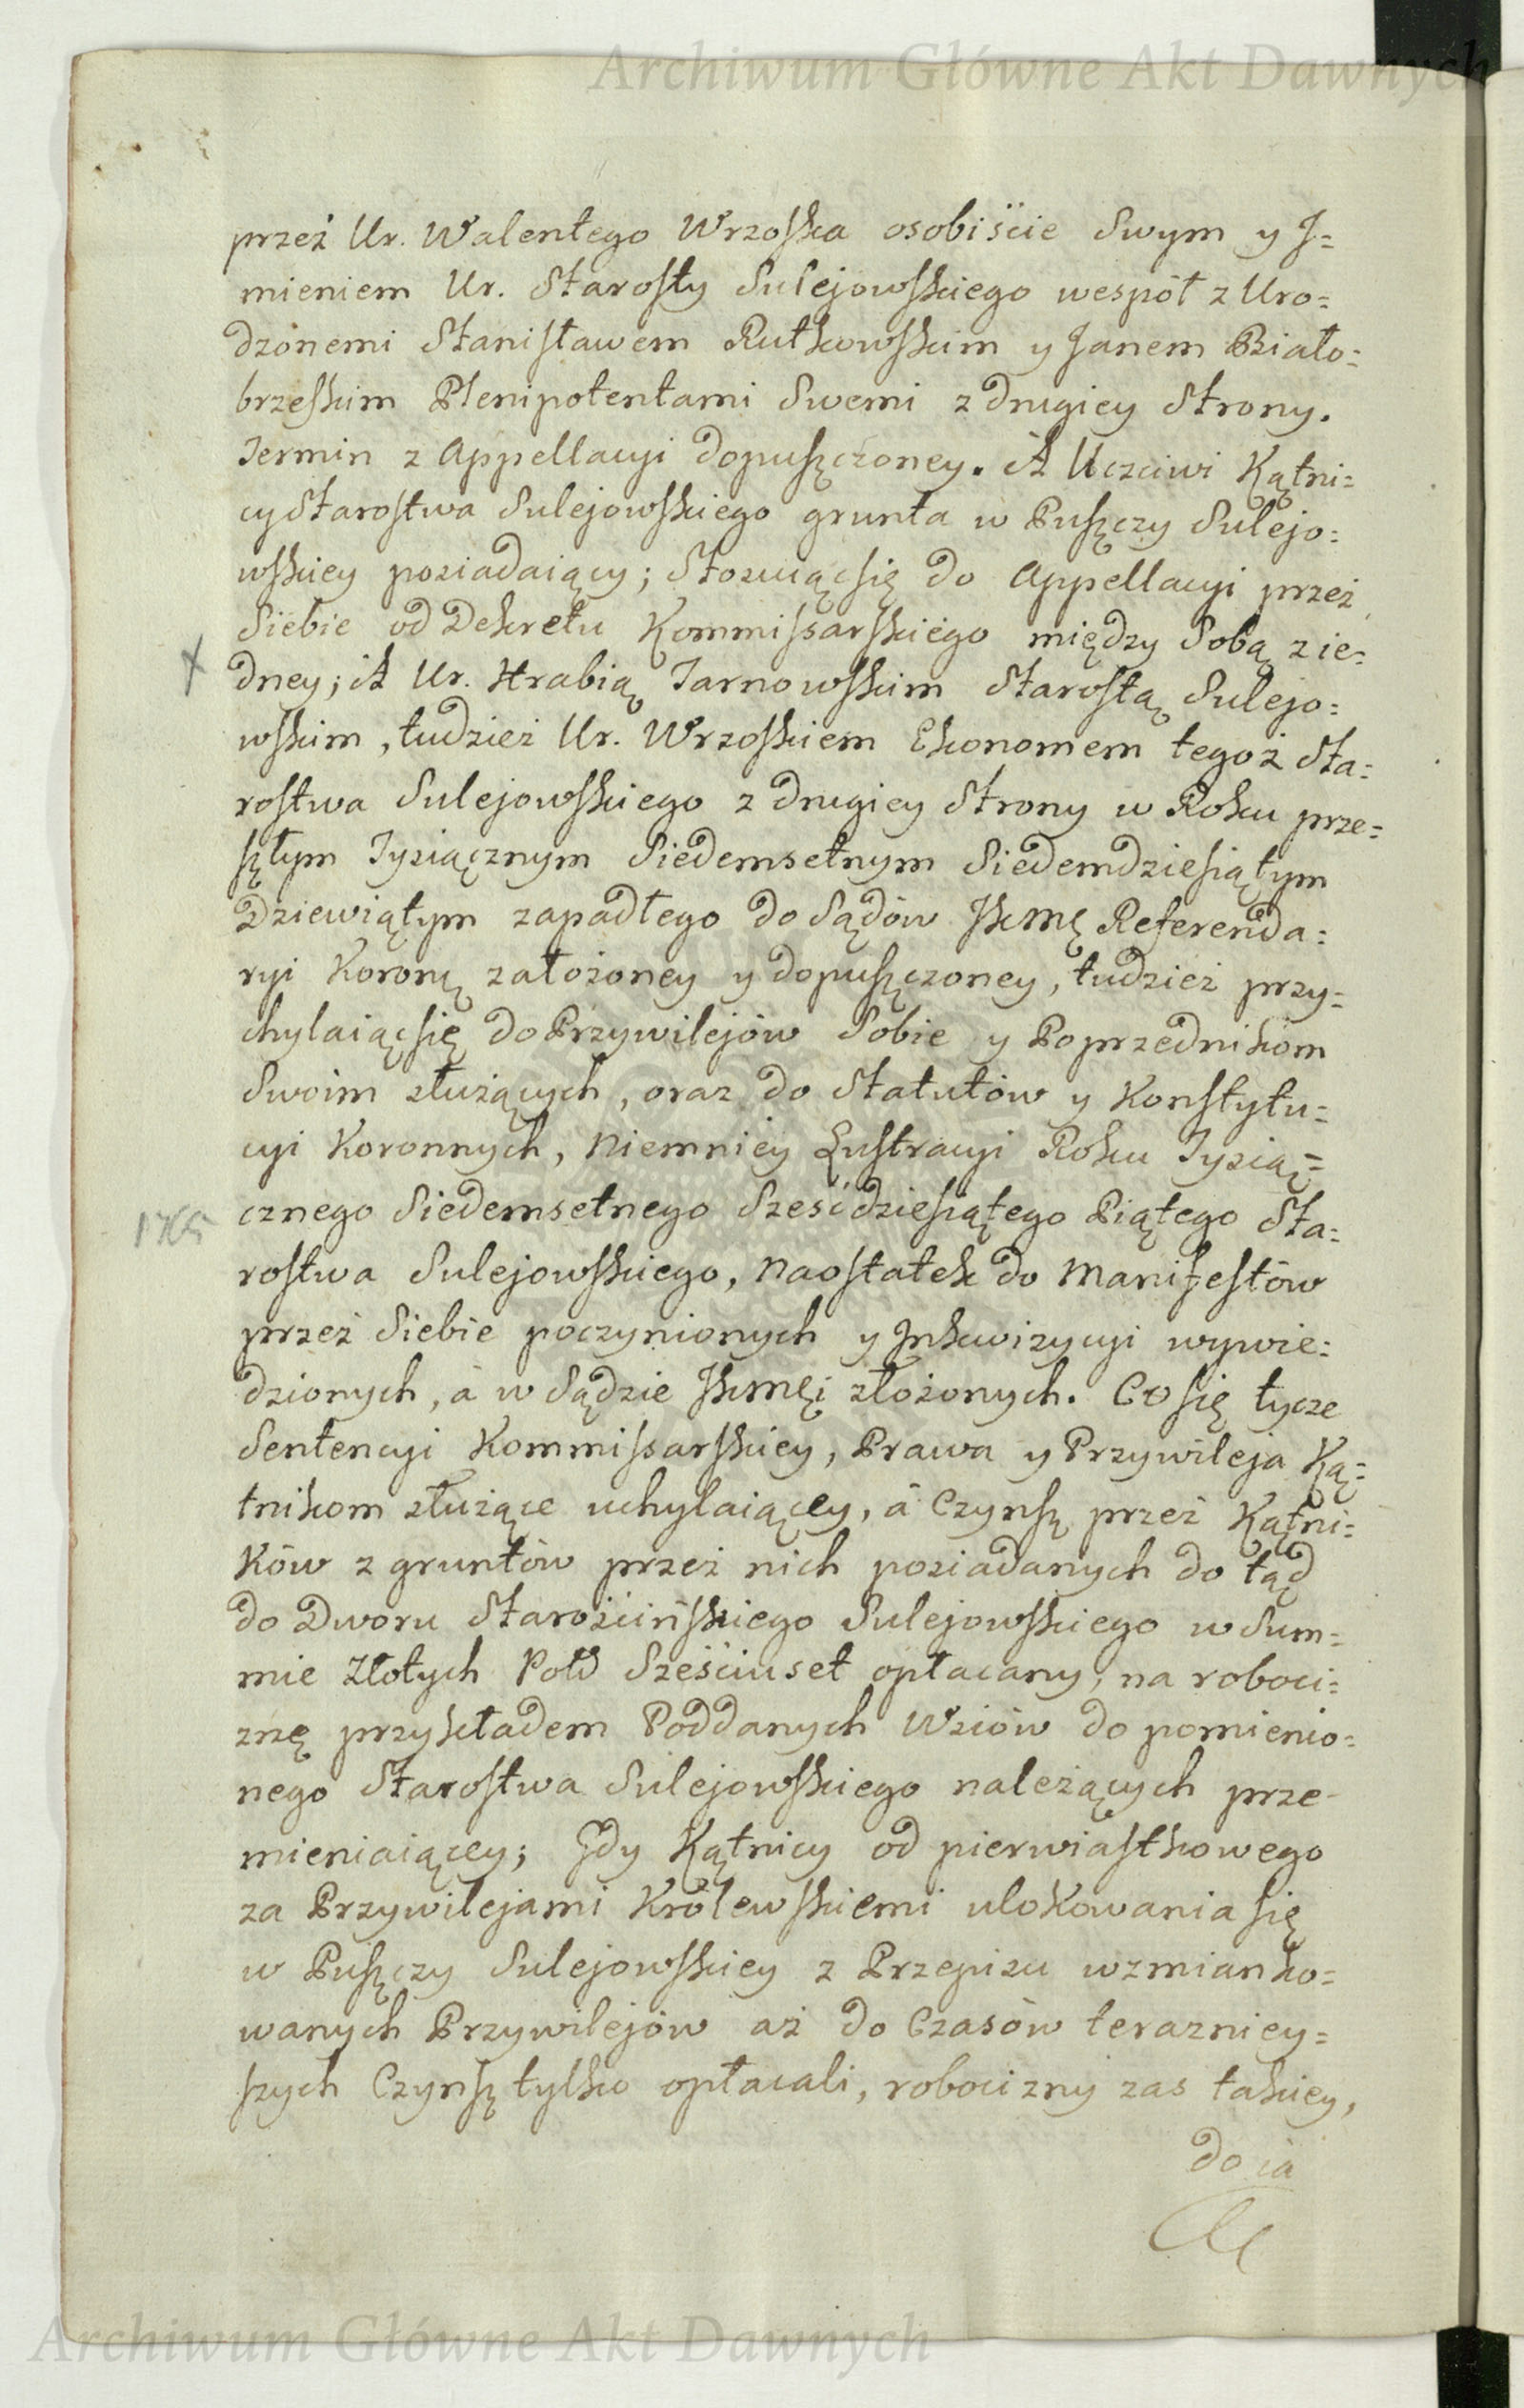 Archiwum Główne Akt Dawnych
przez Ur. Walentego Wrzoska osobiście Swym y J=
mieniem Ur. Starosty Sulejowskiego wespół z Uro=
dzonemi Stanisławem Rutkowskim y Janem Biało=
brzeskim Plenipotentami Swemi z drugiey Strony.
Termin z Appellacyi dopuszczoney. A Uczciwi Kątni=
cy Starostwa Sulejowskiego grunta w Puszczy Sulejo=
wskiey posiadaiący; Stosuiąc się do Appellacyi przez
Siebie od Dekretu Kommissarskiego między Sobą z ie=
dney; A Ur. Hrabią Tarnowskim Starostą Sulejo=
wskim, tudzież Ur. Wrzoskiem Ekonomem tegoż Sta=
rostwa Sulejowskiego z drugiey Strony w Roku prze=
szłym Tysiącznym Siedemsetnym Siedemdziesiątym
Dziewiątym zapadłego do Sądów JKMę Referenda=
ryi Koronę założoney y dopuszczoney, tudzież przy=
chylaiąc się do Przywilejów Sobie y Poprzednikom
Swoim służących, oraz do Statutów y Konstytu=
cyi Koronnych, Niemniey Lustracyi Roku Tysią=
1765 cznego Siedemsetnego Sześćdziesiątego Piątego Sta=
rostwa Sulejowskiego, Naostatek do Manifestów
przez Siebie poczynionych y Jnkwizycyi wywie=
dzionych, a w Sądzie JKMęi złożonych. Co się tycze
Sentencyi Kommissarskiey, Prawa y Przywileja Ką=
tnikom służące uchylaiącey, a Czynsz przez Kątni=
ków z gruntów przez nich posiadanych do tąd
do Dworu Starościńskiego Sulejowskiego w Sum=
mie Złotych Pols Sześciuset opłacany, na roboci=
znę przykładem Poddanych Wsiów do pomienio=
nego Starostwa Sulejowskiego należących prze-
mieniaiącey; Gdy Kątnicy od pierwiastkowego
za Przywilejami Królewskiemi ulokowania się
w Puszczy Sulejowskiey z Przepisu wzmianko=
wanych Przywilejów aż do Czasów terazniey=
szych Czynsz tylko opłacali, robocizny zas takiey,
do ia
Archiwum Główne Akt Dawnych